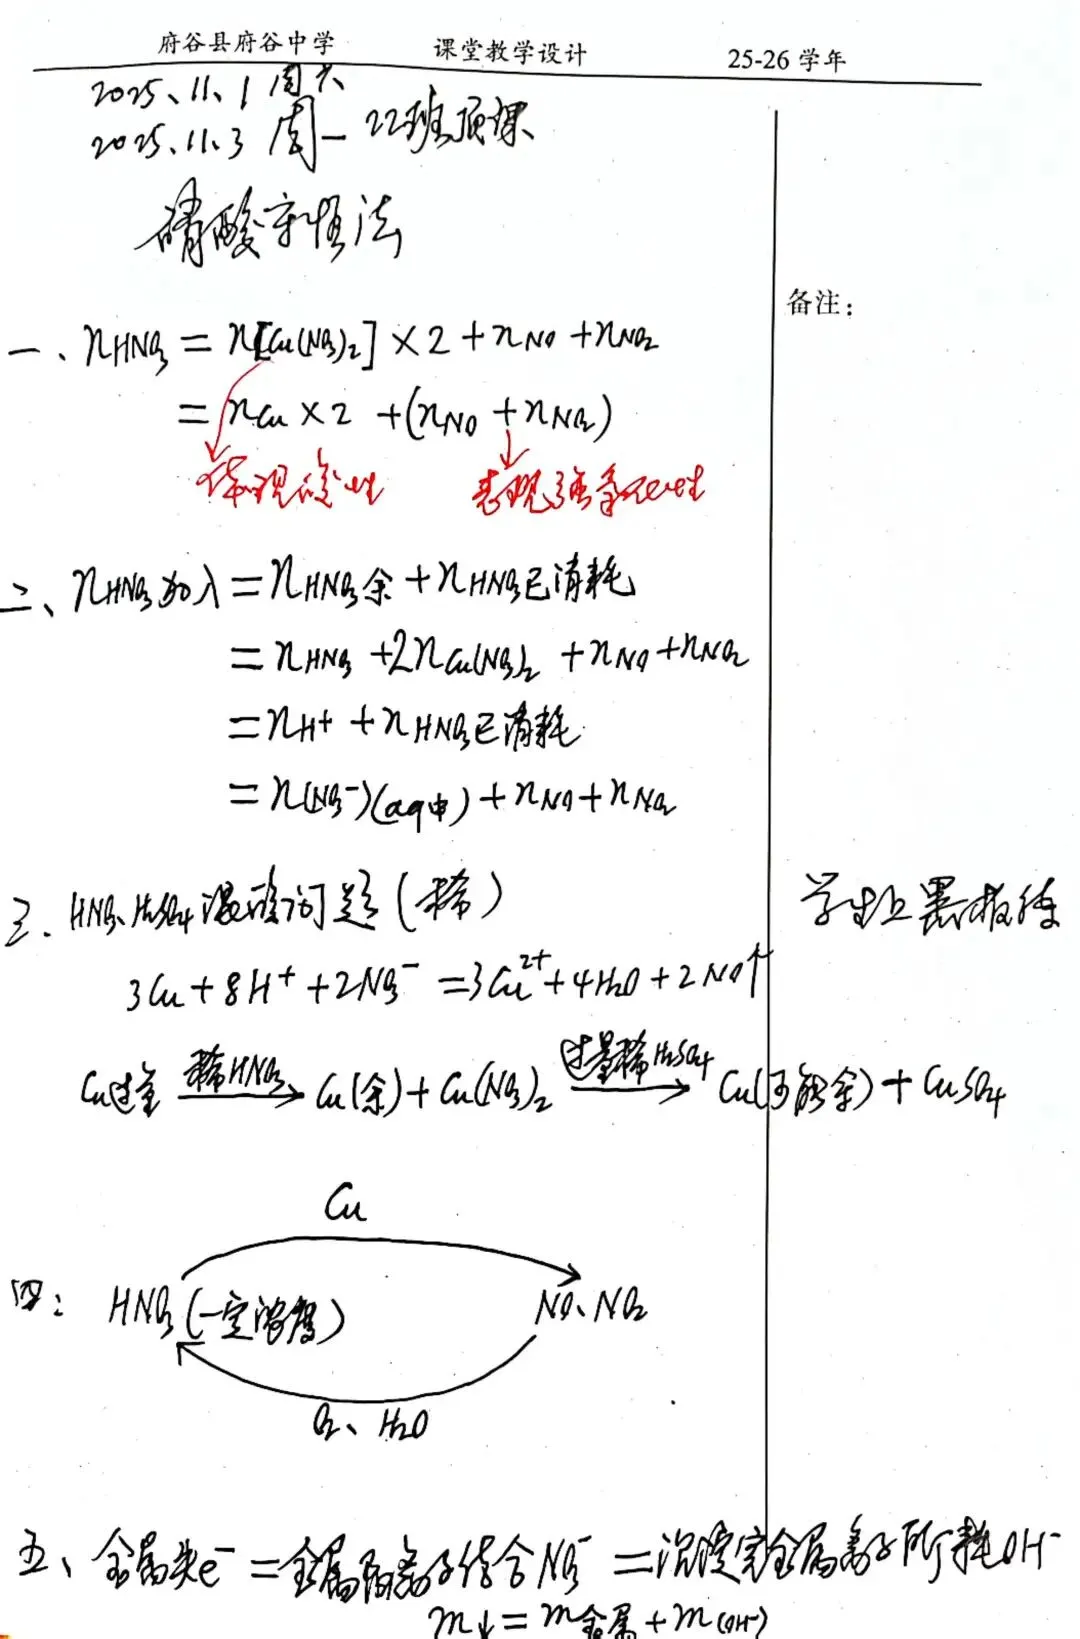 府谷县府谷中学 课堂教学设计 25-26 学年
2025、11、1 周六
2025、11、3 周一 22班顶课
硝酸守恒法
备注：
一、nHNO₃ = n[Cu(NO₃)₂] × 2 + nNO + nNO₂
= nCu × 2 + (nNO + nNO₂)
体现酸性 表现强氧化性
二、nHNO₃加入 = nHNO₃余 + nHNO₃已消耗
= nHNO₃ + 2nCu(NO₃)₂ + nNO + nNO₂
= nH⁺ + nHNO₃已消耗
= n(NO₃⁻)(aq中) + nNO + nNO₂
三、HNO₃、H₂SO₄混酸问题(稀) 学生上黑板练
3Cu + 8H⁺ + 2NO₃⁻ = 3Cu²⁺ + 4H₂O + 2NO↑
Cu过量 稀HNO₃→ Cu(余) + Cu(NO₃)₂ 过量稀H₂SO₄→ Cu(可能余) + CuSO₄
Cu
四： HNO₃(一定浓度) NO、NO₂
O₂、H₂O
五、金属失e⁻ = 金属阳离子结合NO₃⁻ = 沉淀完金属离子所耗OH⁻
m↓ = m金属 + m(OH⁻)